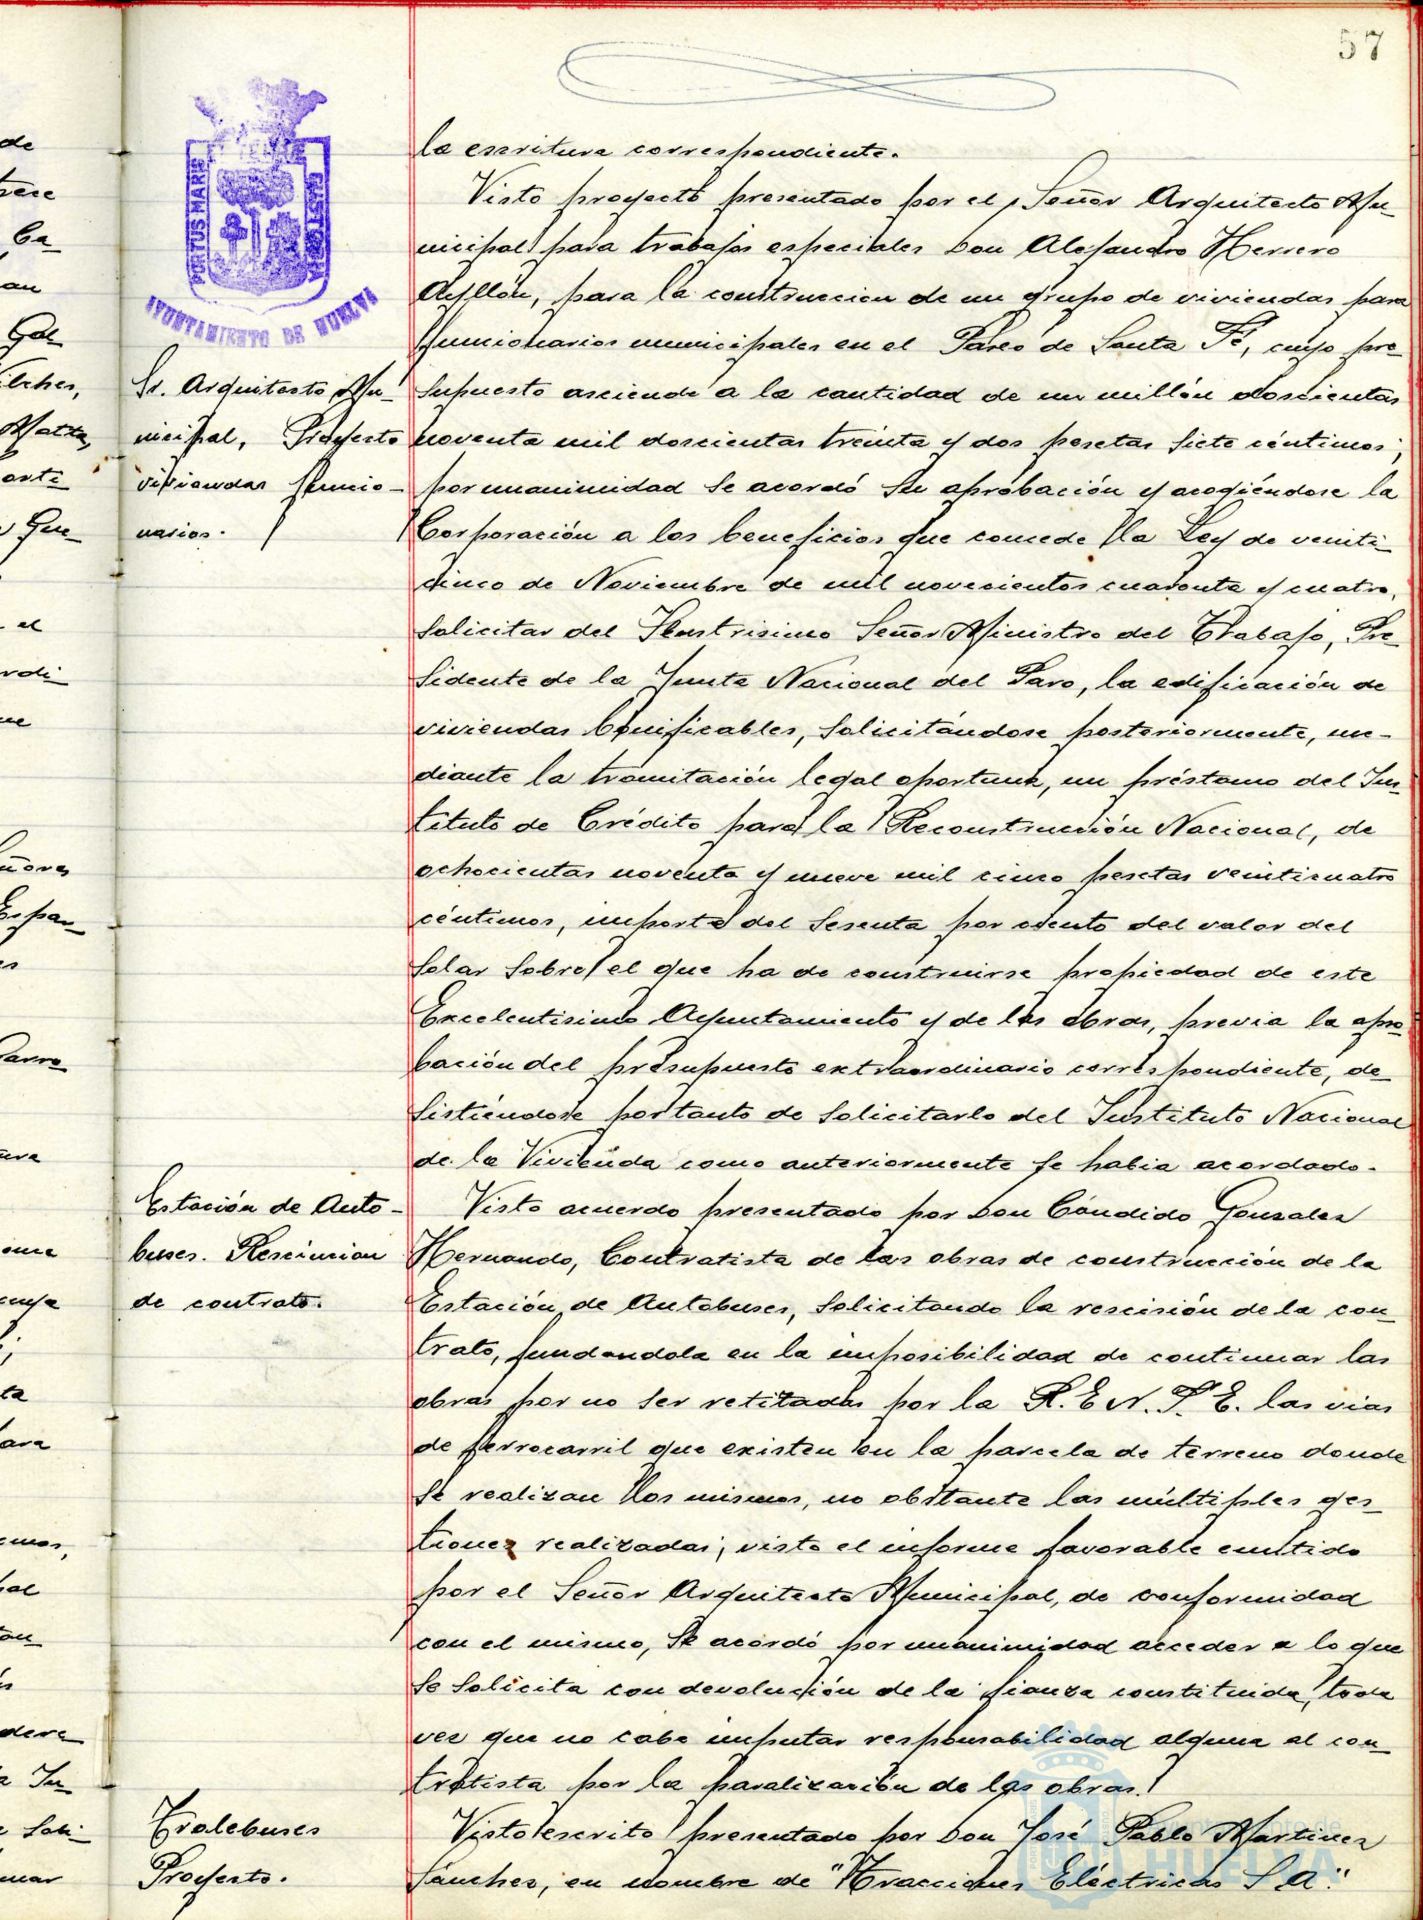 57
PORTUS MARIS ET TERRAE CUSTODIA
AYUNTAMIENTO DE HUELVA
la escritura correspondiente.
Visto proyecto presentado por el Señor Arquitecto Mu-
nicipal para trabajos especiales Don Alejandro Herrero
Ayllón, para la construccion de un grupo de viviendas para
funcionarios municipales en el Paseo de Santa Fé, cuyo pre-
Sr. Arquitecto Mu-
supuesto asciende a la cantidad de un millón doscientas
nicipal, Proyecto
noventa mil doscientas treinta y dos pesetas siete céntimos;
viviendas funcio-
por unanimidad se acordó su aprobación y acogiéndose la
narios.
Corporación a los beneficios que concede la Ley de veinti-
cinco de Noviembre de mil novecientos cuarenta y cuatro,
solicitar del Ilustrisimo Señor Ministro del Trabajo, Pre-
sidente de la Junta Nacional del Paro, la edificación de
viviendas bonificables, solicitándose posteriormente, me-
diante la tramitación legal oportuna, un préstamo del Ins-
tituto de Crédito para la Reconstrucción Nacional, de
ochocientas noventa y nueve mil cinco pesetas veinticuatro
céntimos, importe del sesenta por ciento del valor del
solar sobre el que ha de construirse propiedad de este
Excelentisimo Ayuntamiento y de las obras, previa la apro-
bación del presupuesto extraordinario correspondiente, de-
sistiéndose portanto de solicitarlo del Instituto Nacional
de la Vivienda como anteriormente se habia acordado.
Estación de Auto-
Visto acuerdo presentado por Don Cándido Gonzalez
buses. Rescincion
Hernando, Contratista de las obras de construcción de la
de contrato.
Estación de Autobuses, solicitando la rescisión de la con-
trato, fundandola en la imposibilidad de continuar las
obras por no ser retitadas por la R.E.N.F.E. las vias
de ferrocarril que existen en la parcela de terreno donde
se realizan los mismos, no obstante las múltiples ges-
tiones realizadas; visto el informe favorable emitido
por el Señor Arquitecto Municipal, de conformidad
con el mismo, se acordó por unanimidad acceder a lo que
se solicita con devolución de la fianza constituida, toda
vez que no cabe imputar responsabilidad alguna al con-
tratista por la paralización de las obras.
Trolebuses
Visto escrito presentado por Don José Pablo Martinez
Proyecto.
Sánchez, en nombre de "Tracciones Eléctricas S.A."
Ayuntamiento de
HUELVA